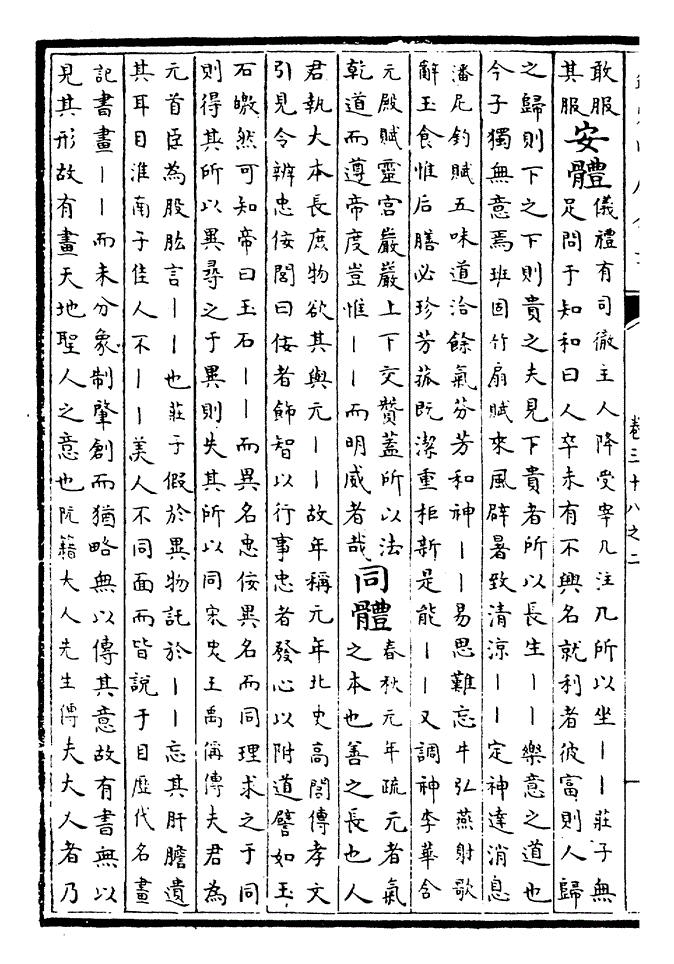 敢服
其服
安體
儀禮有司徹主人降受宰几注几所以坐丨丨莊子無
足問于知和曰人卒未有不興名就利者彼富則人歸
之歸則下之下則貴之夫見下貴者所以長生丨丨樂意之道也
今子獨無意焉班固竹扇賦來風辟暑致清涼丨丨定神達消息
潘尼釣賦五味道洽餘氣芬芳和神丨丨易思難忘牛弘燕射歌
辭玉食惟后膳必珍芳菰既潔重秬新是能丨丨又調神李華含
元殿賦靈宮巖巖上下交贊蓋所以法
乾道而遵帝度豈惟丨丨而明威者哉
同體
春秋元年疏元者氣
之本也善之長也人
君執大本長庶物欲其與元丨丨故年稱元年北史高閭傳孝文
引見令辨忠佞閭曰佞者飾智以行事忠者發心以附道譬如玉
石皦然可知帝曰玉石丨丨而異名忠佞異名而同理求之于同
則得其所以異尋之于異則失其所以同宋史王禹偁傳夫君為
元首臣為股肱言丨丨也莊子假於異物託於丨丨忘其肝膽遺
其耳目淮南子佳人不丨丨美人不同面而皆說于目歷代名畫
記書畫丨丨而未分象制肇創而猶略無以傳其意故有書無以
見其形故有畫天地聖人之意也阮籍大人先生傳夫大人者乃
卷三十八之二